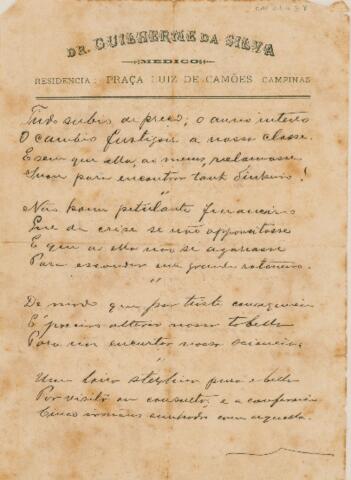 DR. GUILHERME DA SILVA
MEDICO
RESIDENCIA: PRAÇA LUIZ DE CAMÕES CAMPINAS
Tudo subio de preço; o anno inteiro
O cambio fustigou a nossa classe.
E sem que ella, ao menos, reclamasse
para encontrar tanto dinheiro!
"
Não houve petulante financeiro
Que da crise se não approveitasse
E que a ella não se agarrasse
Para esconder um grande
"
De modo que por triste
É preciso alterar nossa tabella
Para não encurtar nossa sciencia.
"
Uma libra sterlina pura e bella
Por visita ou consulta; e a conferencia
Cinco com aquella.